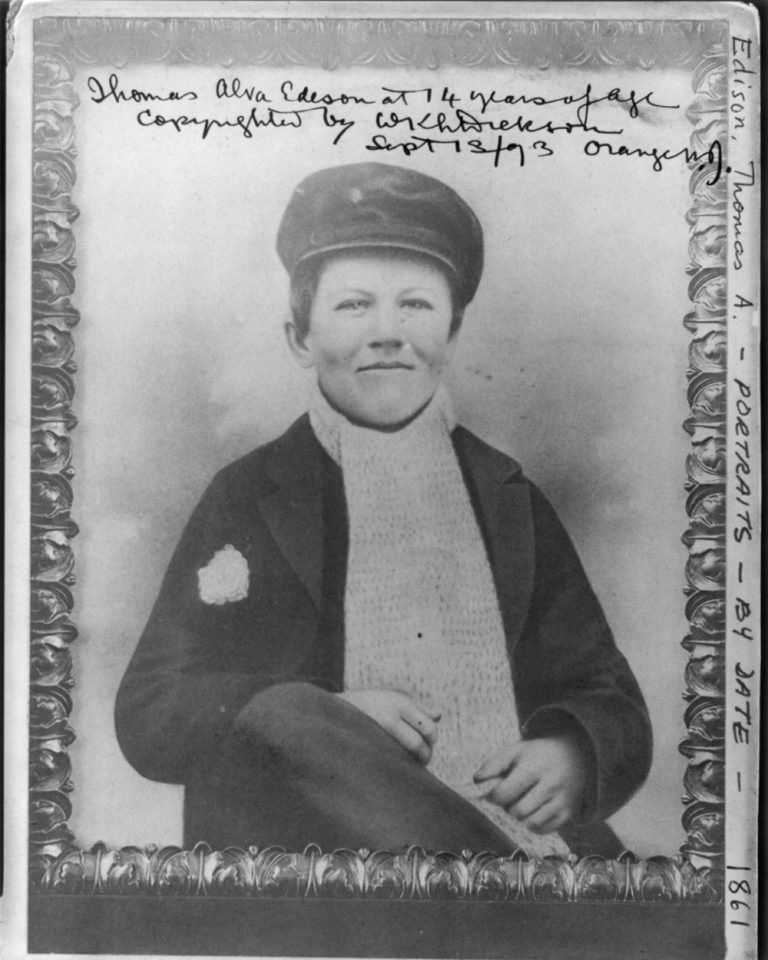 Thomas Alva Edeson at 14 years of age
Copyrighted by WKLDickson
Sept 13/93 Orange N.J.
Edison, Thomas A. - PORTRAITS - BY DATE - 1861